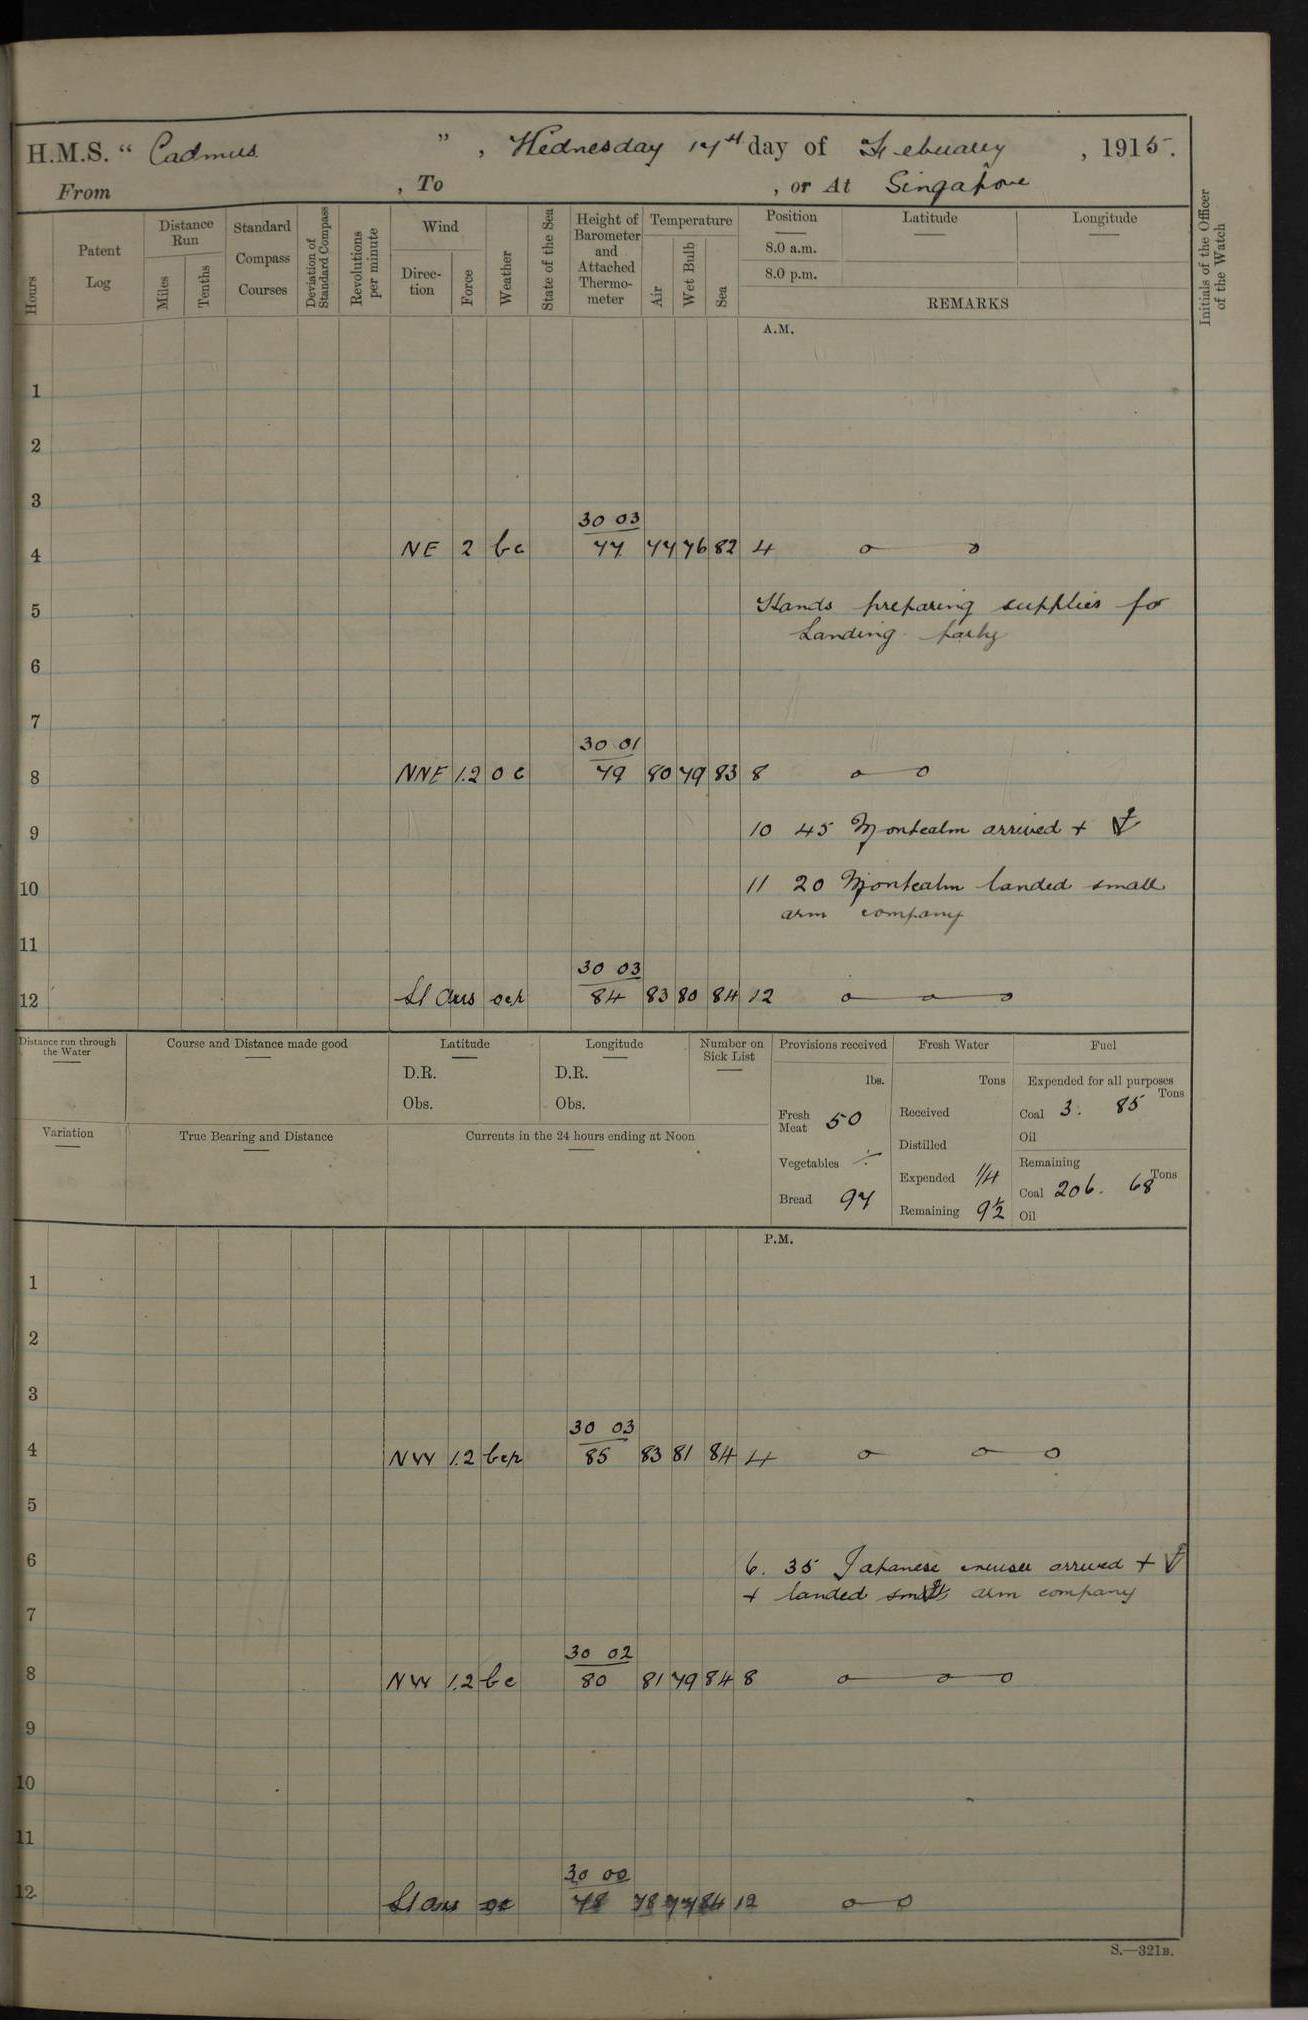 H.M.S. “ Cadmus ” , Wednesday 17th day of Febuary , 1915.
From , To , or At Singapore
Hours
Patent Log
Distance Run
Miles
Tenths
Standard Compass Courses
Deviation of Standard Compass
Revolutions per minute
Wind
Direction
Force
Weather
State of the Sea
Height of Barometer and Attached Thermometer
Temperature
Air
Wet Bulb
Sea
Position
8.0 a.m.
8.0 p.m.
Latitude
Longitude
REMARKS
Initials of the Officer of the Watch
A.M.
1
2
3
30 03
4 NE 2 bc 77 77 76 82 4
5 Hands preparing supplies for
Landing party
6
7
30 01
8 NNE 1.2 oc 79 80 79 83 8
9 10 45 Montcalm arrived + ⚓
10 11 20 Montcalm landed small
arm company
11
30 03
12 Lt airs ocr 84 83 80 84 12
Distance run through the Water
Course and Distance made good
Latitude
D.R.
Obs.
Longitude
D.R.
Obs.
Number on Sick List
Provisions received
lbs.
Fresh Meat 50
Vegetables ÷
Bread 97
Fresh Water
Tons
Received
Distilled
Expended 1/4
Remaining 9½
Fuel
Expended for all purposes
Tons
Coal 3. 85
Oil
Remaining
Tons
Coal 206. 68
Oil
Variation
True Bearing and Distance
Currents in the 24 hours ending at Noon
P.M.
1
2
3
30 03
4 NW 1.2 bcr 85 83 81 84 4
5
6 6. 35 Japanese cruiser arrived + ⚓
+ landed small arm company
7
30 02
8 NW 1.2 bc 80 81 79 84 8
9
10
11
30 00
12 Lt airs oc 78 78 77 84 12
S.—321B.